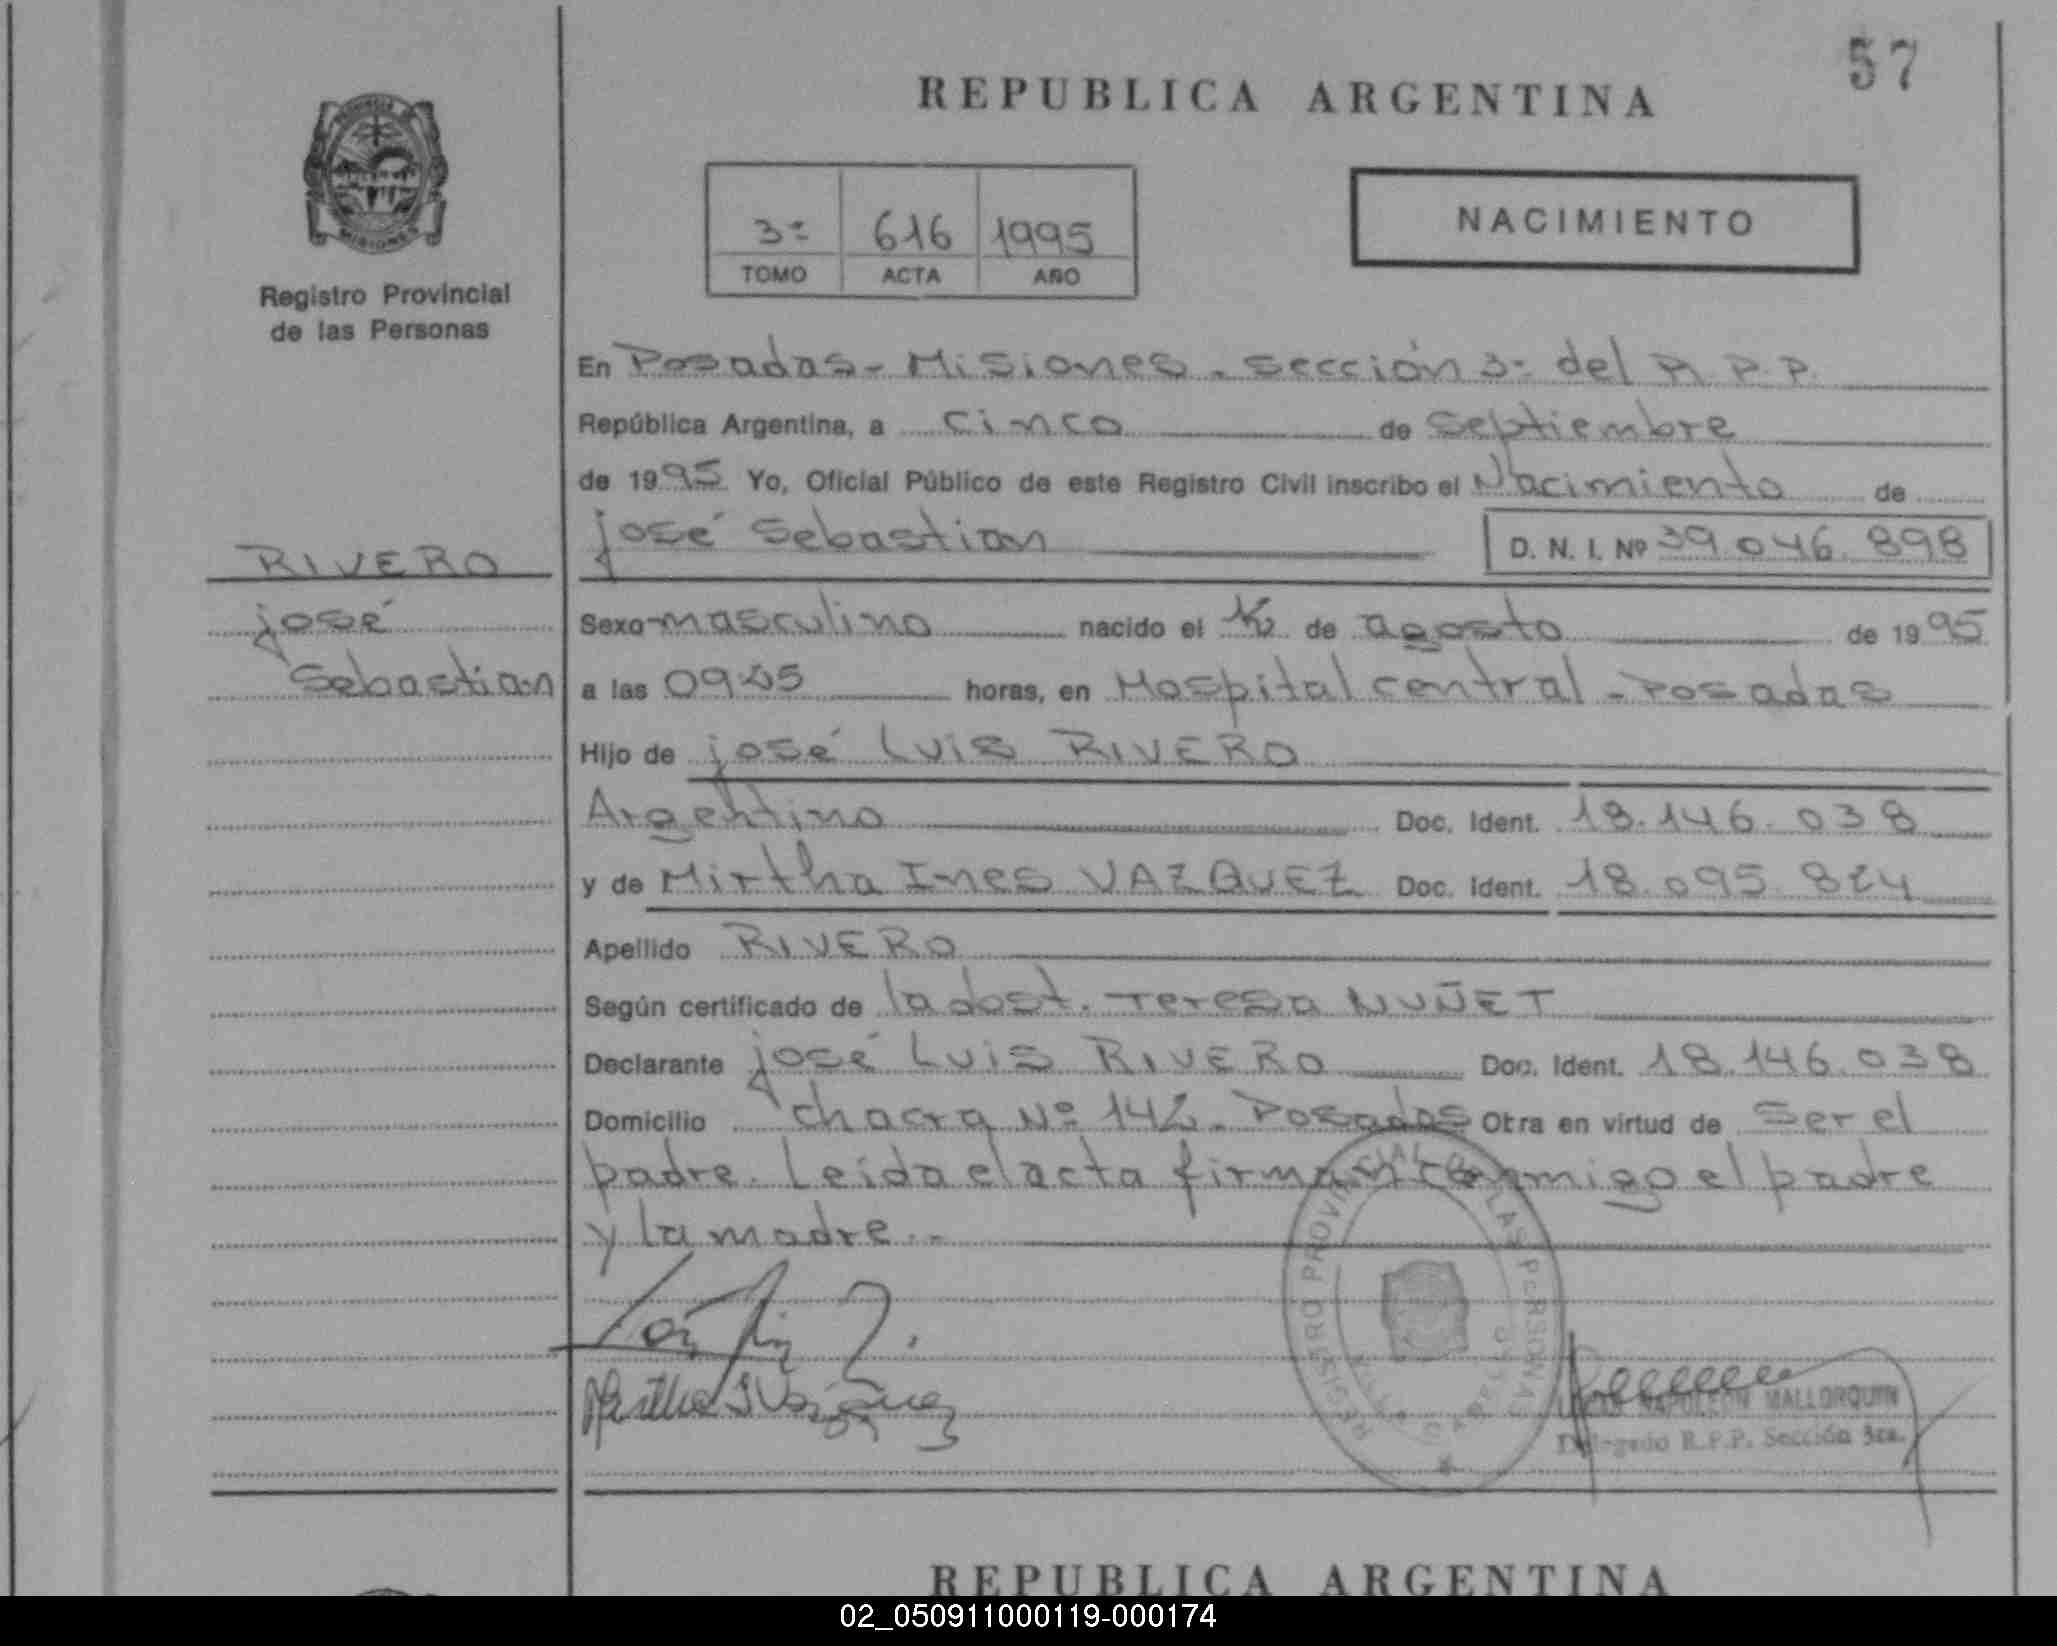 57
REPUBLICA ARGENTINA
3º 616 1995
TOMO ACTA AÑO
NACIMIENTO
MISIONES
Registro Provincial
de las Personas
En Posadas - Misiones - sección 3º del R.P.P.
República Argentina, a cinco de septiembre
de 1995 Yo, Oficial Público de este Registro Civil inscribo el Nacimiento de
josé Sebastian D. N. I. Nº 39.046.898
RIVERO
josé
Sebastian
Sexo masculino nacido el de agosto de 1995
a las horas, en Hospital central - Posadas
Hijo de josé Luis RIVERO
Argentino Doc. Ident. 18.146.038
y de Mirtha Ines VAZQUEZ Doc. Ident. 18.095.824
Apellido RIVERO
Según certificado de la dost. Teresa NUÑET
Declarante josé Luis RIVERO Doc. Ident. 18.146.038
Domicilio chacra Nº 142 - Posadas Otra en virtud de ser el
padre. Leída el acta firman conmigo el padre
y la madre..-
REGISTRO PROVINCIAL DE LAS PERSONAS
NAPOLEON MALLORQUIN
Delegado R.P.P. Sección 3ra.
REPUBLICA ARGENTINA
02_050911000119-000174